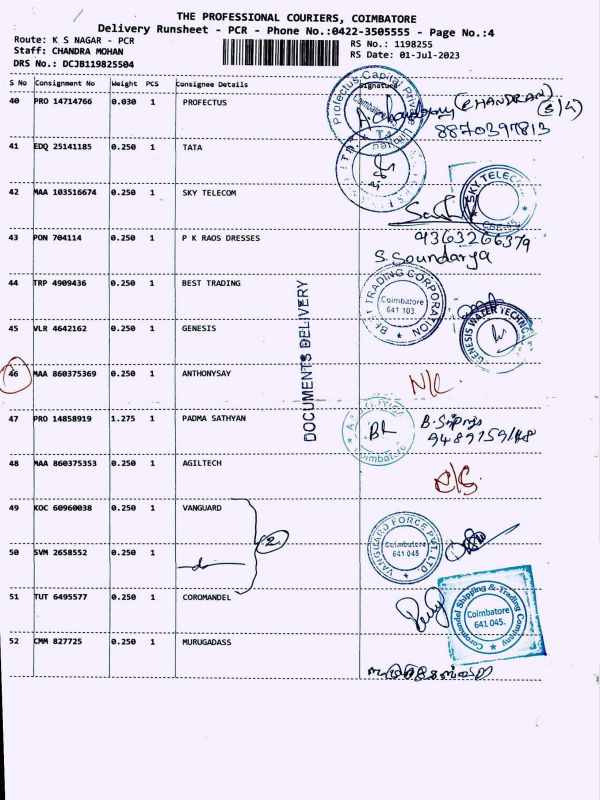 THE PROFESSIONAL COURIERS, COIMBATORE
Delivery Runsheet - PCR - Phone No.:0422-3505555 - Page No.:4
Route: K S NAGAR - PCR
RS No.: 1198255
Staff: CHANDRA MOHAN
RS Date: 01-Jul-2023
DRS No.: DCJB119825504
S No Consignment No Weight PCS Consignee Details Signature
40 PRO 14714766 0.030 1 PROFECTUS
Profectus Capital Private Limited
Coimbatore
(CHANDRAN)
8870397813
41 EDQ 25141185 0.250 1 TATA
42 MAA 103516674 0.250 1 SKY TELECOM
SKY TELECOM
CBE-45
43 PON 704114 0.250 1 P K RAOS DRESSES
9363266379
S. Soundarya
44 TRP 4909436 0.250 1 BEST TRADING
BEST TRADING CORPORATION
Coimbatore
641 103.
45 VLR 4642162 0.250 1 GENESIS
GENESIS WATER TECHNO
DOCUMENTS DELIVERY
46 MAA 860375369 0.250 1 ANTHONYSAY
47 PRO 14858919 1.275 1 PADMA SATHYAN
Coimbatore
9489759148
48 MAA 860375353 0.250 1 AGILTECH
49 KOC 60960038 0.250 1 VANGUARD
2
VANGUARD FORCE PVT. LTD
Coimbatore
641 045
50 SVM 2658552 0.250 1
51 TUT 6495577 0.250 1 COROMANDEL
Coromandel Shipping & Trading Company
Coimbatore
641 045.
52 CMM 827725 0.250 1 MURUGADASS